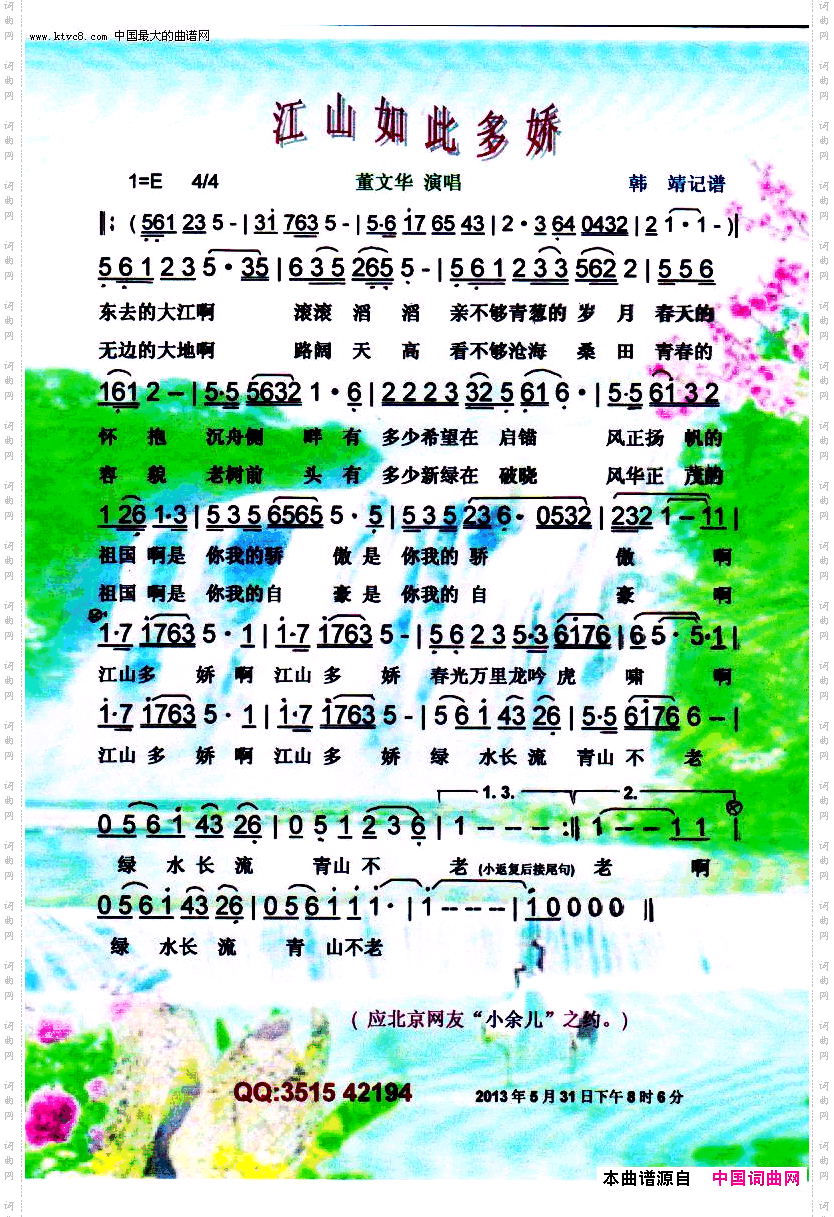 www.ktvc8.com 中国最大的曲谱网
江山如此多娇
1=E 4/4 董文华 演唱 韩 靖记谱
‖: ( 561 23 5 - | 31 763 5 - | 5·6 17 65 43 | 2 · 3 64 0432 | 2 1 · 1 - ) ‖
5 6 1 2 3 5 · 35 | 6 3 5 265 5 - | 5 6 1 2 3 3 562 2 | 5 5 6
东去的大江啊 滚滚 滔 滔 亲不够青葱的 岁 月 春天的
无边的大地啊 路阔 天 高 看不够沧海 桑 田 青春的
161 2 - | 5·5 5632 1 · 6 | 2 2 2 3 32 5 61 6 · | 5·5 61 3 2
怀 抱 沉舟侧 畔 有 多少希望在 启锚 风正扬 帆的
容 貌 老树前 头 有 多少新绿在 破晓 风华正 茂的
1 26 1·3 | 5 3 5 6565 5 · 5 | 5 3 5 23 6 · 0532 | 232 1 - 11 |
祖国 啊是 你我的骄 傲 是 你我的 骄 傲 啊
祖国 啊是 你我的自 豪 是 你我的 自 豪 啊
1·7 1763 5 · 1 | 1·7 1763 5 - | 5 6 2 3 5·3 6176 | 6 5 · 5·1 |
江山多 娇 啊 江山 多 娇 春光万里龙吟 虎 啸 啊
1·7 1763 5 · 1 | 1·7 1763 5 - | 5 6 1 43 26 | 5·5 6176 6 - |
江山 多 娇 啊 江山 多 娇 绿 水长 流 青山 不 老
1. 3. 2.
0 5 6 1 43 26 | 0 5 1 2 3 6 | 1 - - - :‖ 1 - - 1 1 |
绿 水 长 流 青山 不 老 (小返复后接尾句) 老 啊
0 5 6 1 43 26 | 0 5 6 1 1 1 · | 1 - - - - | 1 0 0 0 0 ‖
绿 水长 流 青 山不老
( 应北京网友“小余儿”之约。)
QQ:3515 42194 2013 年 5 月 31 日下午 8 时 6 分
本曲谱源自 中国词曲网